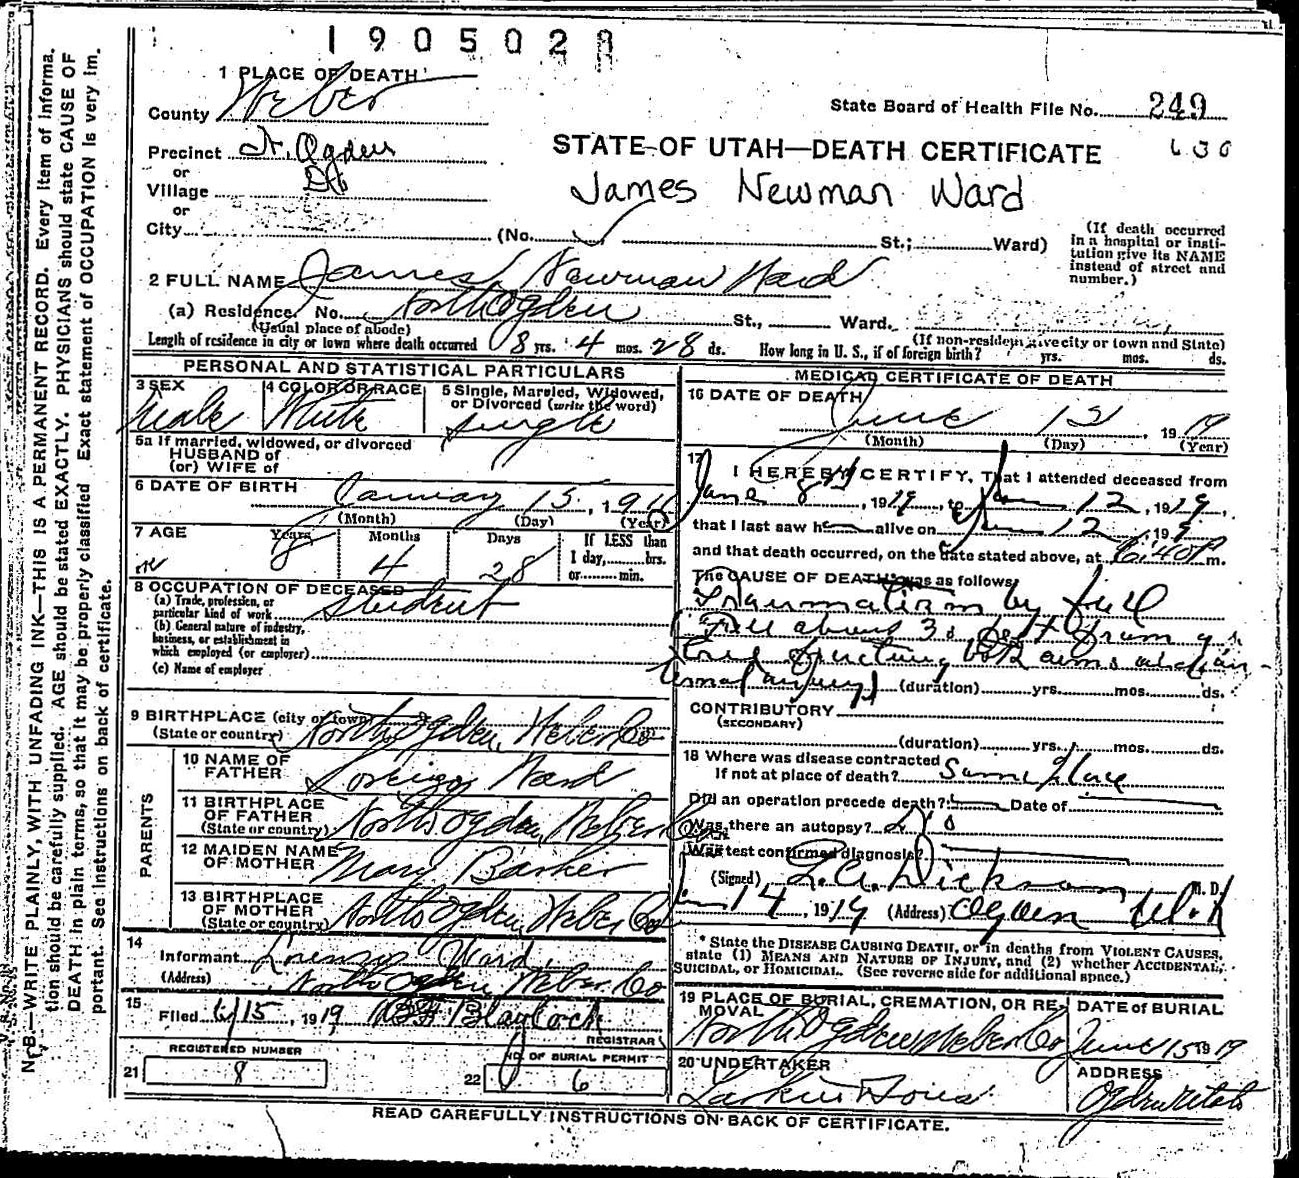 1905028
1 PLACE OF DEATH
County Weber
State Board of Health File No. 249
Precinct N. Ogden
STATE OF UTAH—DEATH CERTIFICATE
or
Village
James Newman Ward
or
City (No. St.; Ward)
(If death occurred
in a hospital or insti-
tution give its NAME
instead of street and
number.)
2 FULL NAME James Newman Ward
(a) Residence. No. North Ogden St., Ward.
(Usual place of abode)
(If non-resident give city or town and State)
Length of residence in city or town where death occurred 8 yrs. 4 mos. 28 ds. How long in U. S., if of foreign birth? yrs. mos. ds.
PERSONAL AND STATISTICAL PARTICULARS
3 SEX
Male
4 COLOR OR RACE
White
5 Single, Married, Widowed,
or Divorced (write the word)
single
5a If married, widowed, or divorced
HUSBAND of
(or) WIFE of
6 DATE OF BIRTH
January 15, 19
(Month) (Day) (Year)
7 AGE
Years Months Days
8 4 28
If LESS than
1 day, hrs.
or min.
8 OCCUPATION OF DECEASED
(a) Trade, profession, or
particular kind of work student
(b) General nature of industry,
business, or establishment in
which employed (or employer)
(c) Name of employer
9 BIRTHPLACE (city or town)
(State or country) North Ogden, Weber Co
PARENTS
10 NAME OF
FATHER Lorenzo Ward
11 BIRTHPLACE
OF FATHER
(State or country) North Ogden, Weber Co
12 MAIDEN NAME
OF MOTHER Mary Barker
13 BIRTHPLACE
OF MOTHER
(State or country) North Ogden, Weber Co
14
Informant Lorenzo Ward,
(Address) North Ogden, Weber Co
15
Filed 6/15, 1919 Blaylock
REGISTRAR
REGISTERED NUMBER
21 8
NO. OF BURIAL PERMIT
22 6
MEDICAL CERTIFICATE OF DEATH
16 DATE OF DEATH
June 12, 1919
(Month) (Day) (Year)
17
I HEREBY CERTIFY, That I attended deceased from
June 8th, 1919, to June 12, 1919,
that I last saw h alive on June 12, 1919
and that death occurred, on the date stated above, at 6:40 P m.
The CAUSE OF DEATH was as follows
Traumatism by fall
(Fell about 30 feet from a
tree fracturing both arms and in-
ternal injury) (duration) yrs. mos. ds.
CONTRIBUTORY
(SECONDARY)
(duration) yrs. mos. ds.
18 Where was disease contracted
If not at place of death? Same place
Did an operation precede death? Date of
Was there an autopsy? No
Was test confirmed diagnosis?
(Signed) Dickson M. D.
June 14, 1919 (Address) Ogden Utah
* State the DISEASE CAUSING DEATH, or in deaths from VIOLENT CAUSES,
state (1) MEANS AND NATURE OF INJURY, and (2) whether ACCIDENTAL,
SUICIDAL, or HOMICIDAL. (See reverse side for additional space.)
19 PLACE OF BURIAL, CREMATION, OR RE-
MOVAL
North Ogden Weber Co
DATE OF BURIAL
June 15 1919
20 UNDERTAKER
Larkin & Sons
ADDRESS
Ogden Utah
READ CAREFULLY INSTRUCTIONS ON BACK OF CERTIFICATE.
N. B.—WRITE PLAINLY, WITH UNFADING INK—THIS IS A PERMANENT RECORD. Every item of informa-
tion should be carefully supplied. AGE should be stated EXACTLY. PHYSICIANS should state CAUSE OF
DEATH in plain terms, so that it may be properly classified. Exact statement of OCCUPATION is very im-
portant. See instructions on back of certificate.